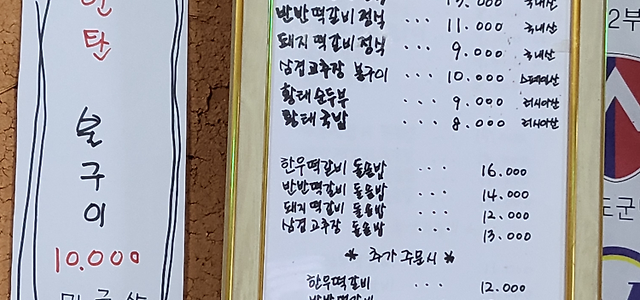 탄
불
구
이
10.000
반반떡갈비정식 ... 11.000 국내산
돼지떡갈비정식 ... 9.000 국내산
삼겹고추장 불구이 ... 10.000 스페인산
황태순두부 ... 9.000 러시아산
황태국밥 ... 8.000 러시아산
한우떡갈비 돌솥밥 ... 16.000
반반떡갈비 돌솥밥 ... 14.000
돼지떡갈비 돌솥밥 ... 12.000
삼겹고추장 돌솥밥 ... 13.000
* 추가 주문시 *
한우떡갈비 ... 12.000
2부